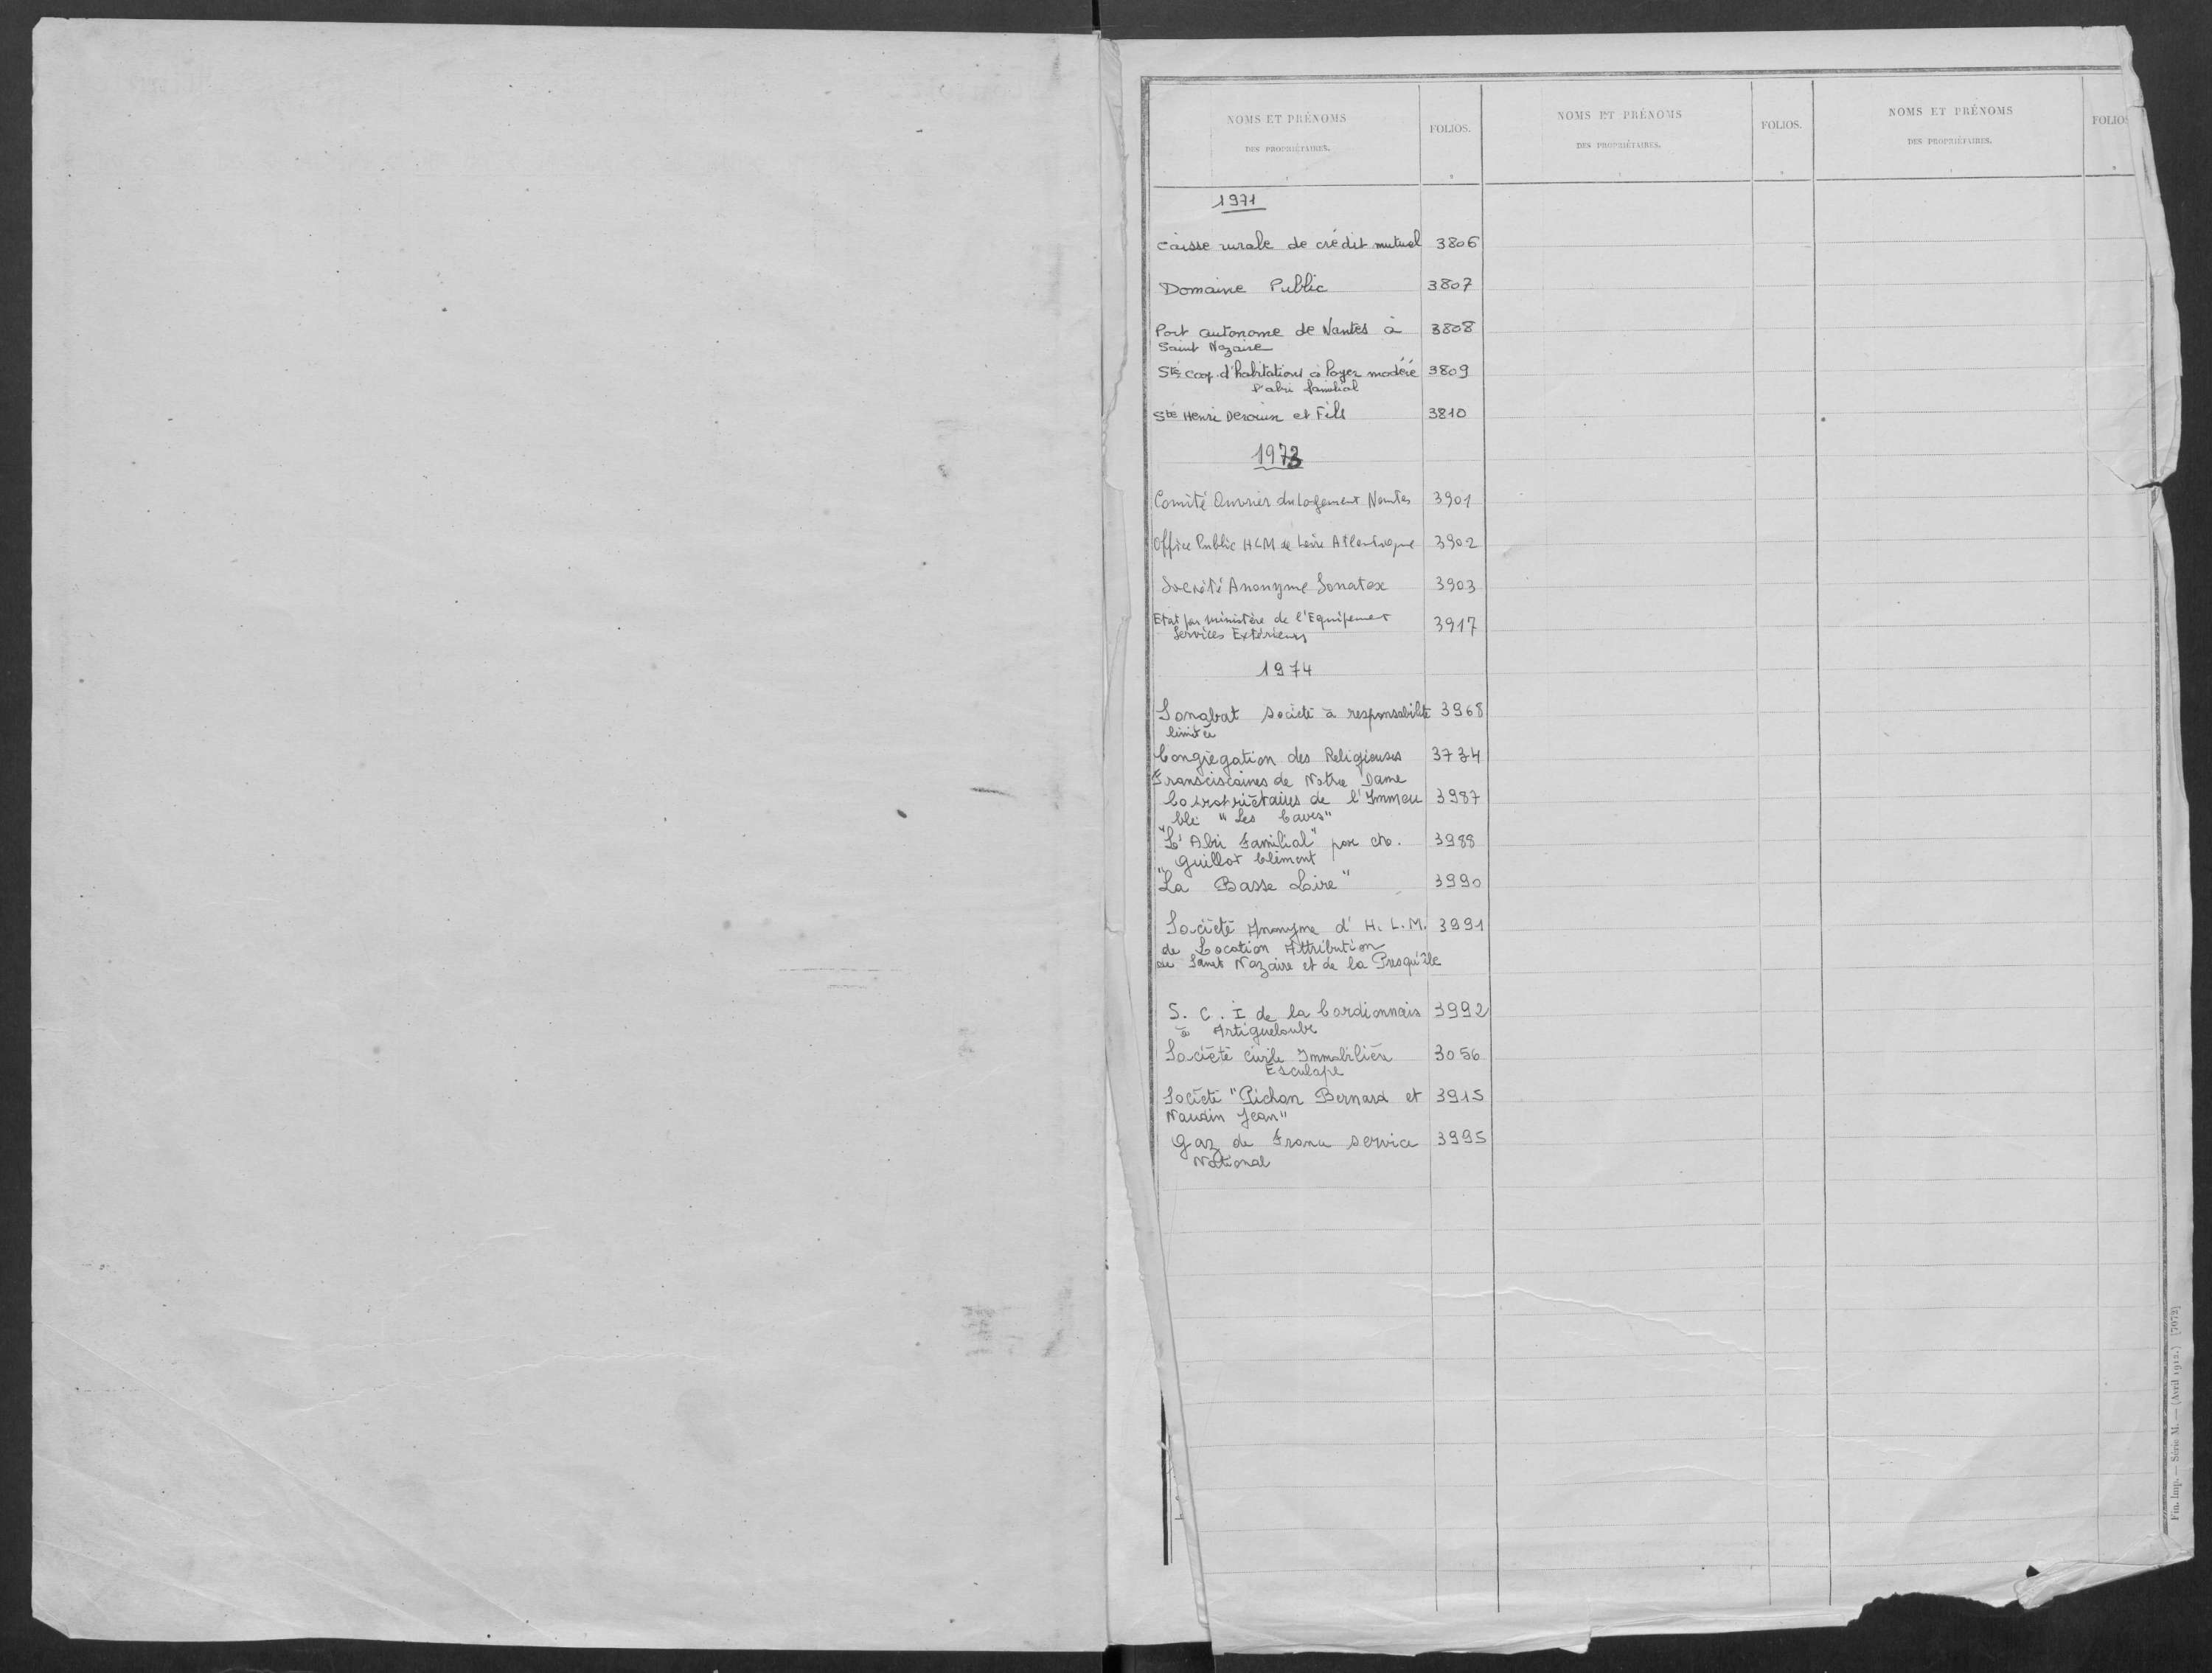 NOMS ET PRÉNOMS
DES PROPRIÉTAIRES.
FOLIOS.
NOMS ET PRÉNOMS
DES PROPRIÉTAIRES.
FOLIOS.
NOMS ET PRÉNOMS
DES PROPRIÉTAIRES.
FOLIOS
1971
Caisse rurale de crédit mutuel 3806
Domaine Public 3807
Port autonome de Nantes à 3808
Saint Nazaire
Sté coop. d'habitations à loyer modéré 3809
l'abri familial
Sté Henri et Fils 3810
1973
Comité Ouvrier du Logement Nantes 3901
Office Public HLM de Loire Atlantique 3902
Société Anonyme Sonatex 3903
Etat par ministère de l'Equipement 3917
Services Extérieurs
1974
Sonabat société à responsabilité 3968
limitée
Congrégation des Religieuses 3734
Franciscaines de Notre Dame
Copropriétaires de l'Immeu 3987
ble "Les Caves"
"L'Abri Familial" par 3988
Guillot Clément
"La Basse Loire" 3990
Société Anonyme d'H.L.M. 3991
de Location Attribution
de Saint Nazaire et de la Presqu'île
S.C.I de la Cardionnais 3992
à Artigueloube
Société Civile Immobilière 3056
Esculape
Société "Pichon Bernard et 3915
Naudin Jean"
Gaz de France service 3995
National
Fin. Imp. — Série M. — (Avril 1912.) [7072]